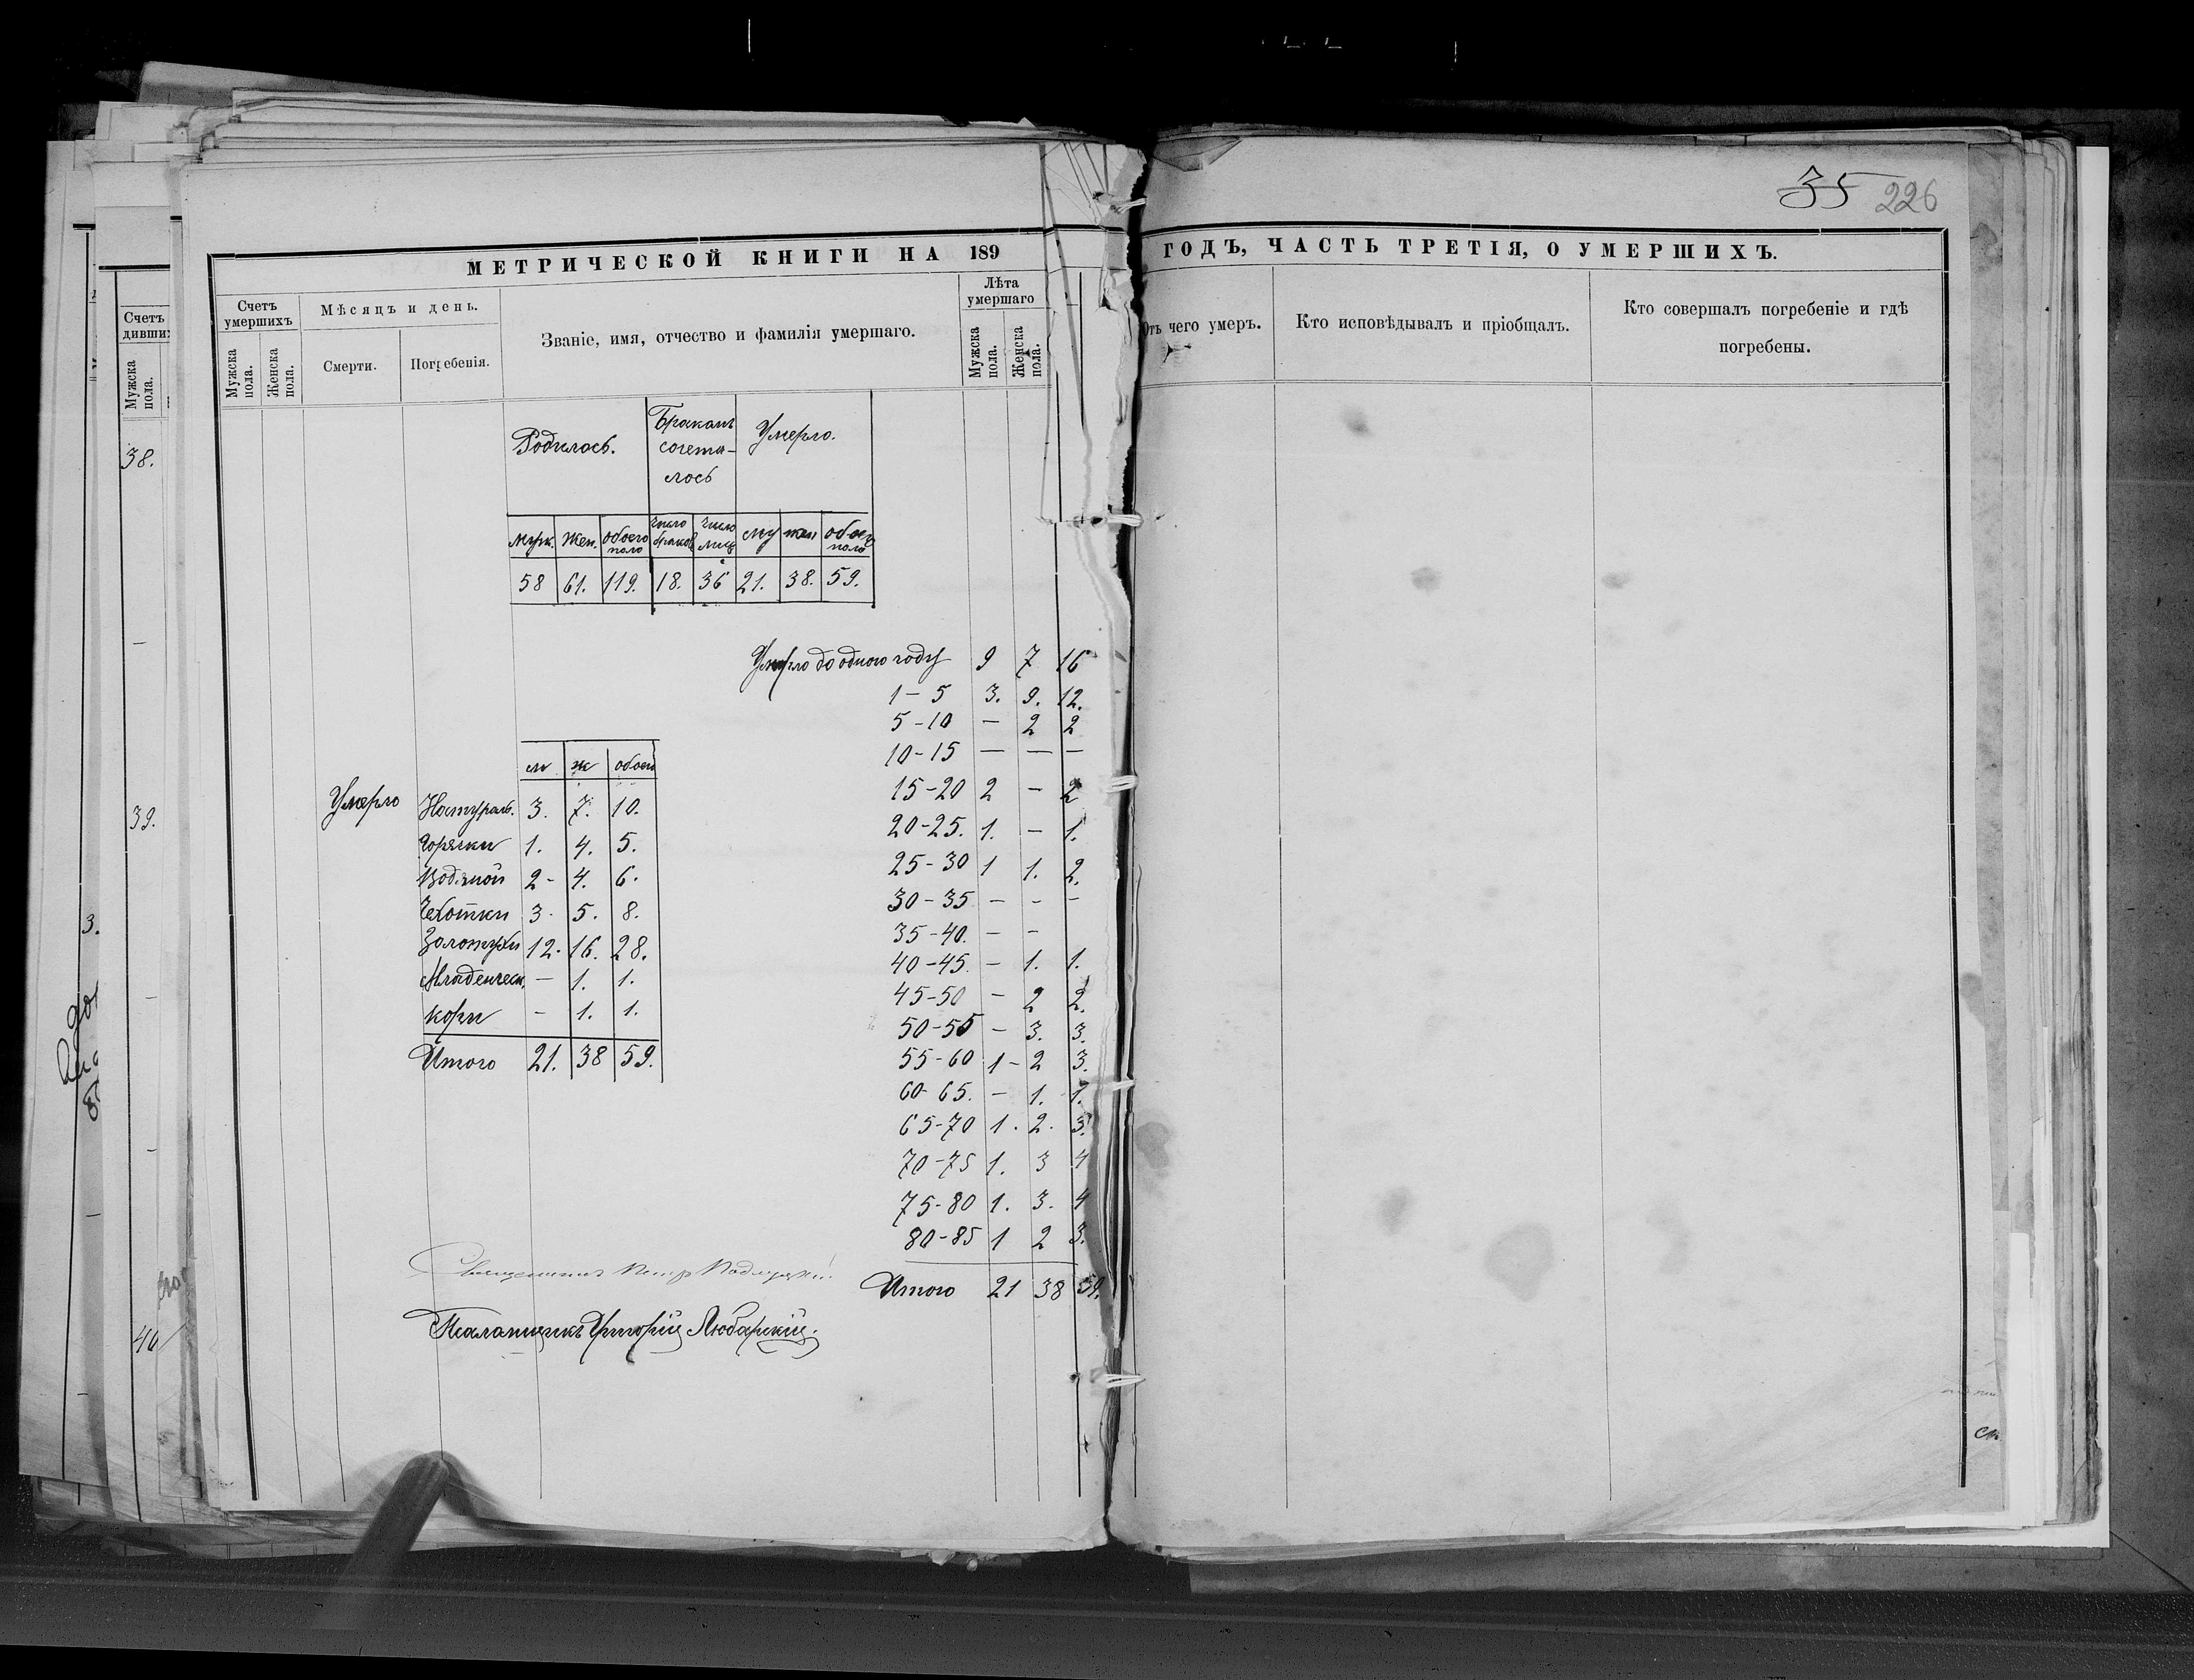 35 226
МЕТРИЧЕСКОЙ КНИГИ НА 189 ГОДЪ, ЧАСТЬ ТРЕТІЯ, О УМЕРШИХЪ.
Счетъ умершихъ
Мѣсяцъ и день.
Званіе, имя, отчество и фамилія умершаго.
Лѣта умершаго
Мужска пола.
Женска пола.
Смерти.
Погребенія.
Мужска пола.
Женска пола.
Отъ чего умеръ.
Кто исповѣдывалъ и пріобщалъ.
Кто совершалъ погребеніе и гдѣ
погребены.
Родилось.
Бракомъ
сочета-
лось
Умерло.
муж. жен. обоего пола число браковъ число лицъ му жен обоего пола
58 61. 119. 18. 36 21. 38. 59.
Умерло до одного году 9 7 16
1-5 3. 9. 12.
5-10 — 2 2
10-15 — — —
15-20 2 — 2
20-25. 1. — 1.
25-30 1 1. 2.
30-35 — - -
35-40. — -
40-45. — 1. 1.
45-50 — 2 2.
50-55 — 3. 3.
55-60 1 - 2 3.
60-65. — 1. 1.
65-70 1. 2. 3.
70-75 1. 3 4
75-80 1. 3. 4
80-85 1 2 3.
Итого 21 38 59.
м ж обоего
Умерло Натураль. 3. 7. 10.
Горячки 1. 4. 5.
Водяной 2- 4. 6.
Чехотки 3. 5. 8.
Золотухи 12. 16. 28.
Младенческ. — 1. 1.
кори - 1. 1.
Итого 21. 38 59.
Священникъ Петр
Псаломщикъ Григорій Любарскій.
Счетъ
дивших
Мужска пола.
38.
39.
40
3.